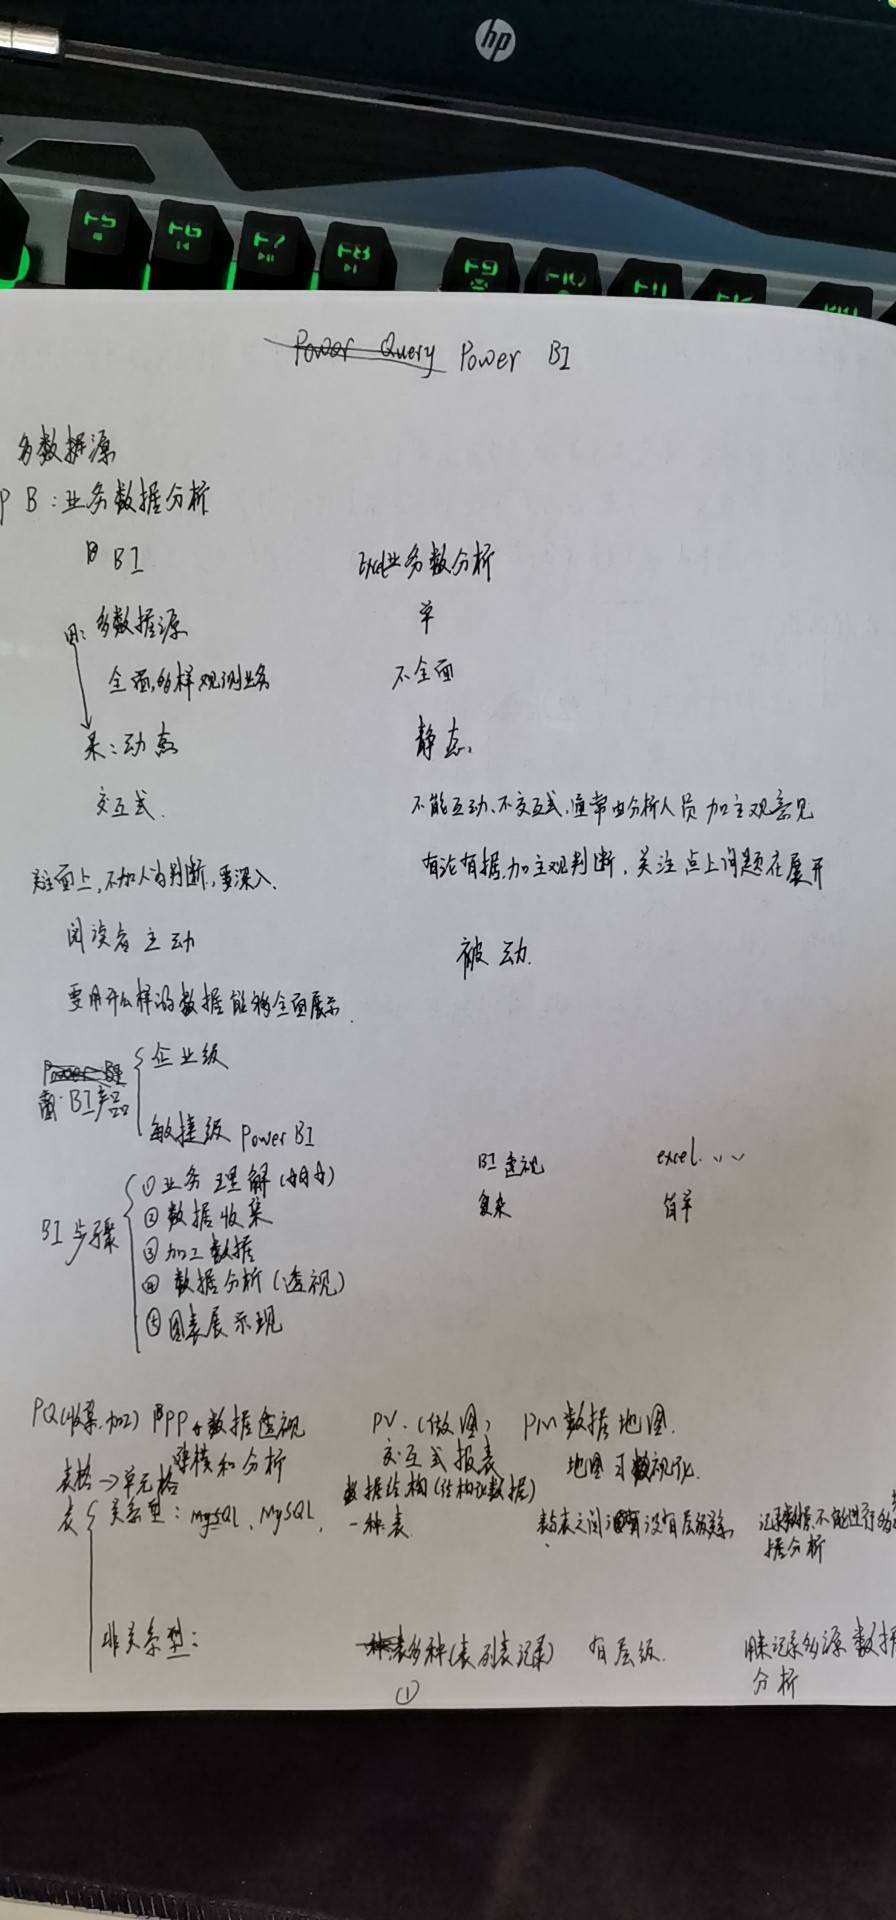 hp
F5
F6
F7
F8
F9
F10
F11
Power Query Power BI
多数据源
P B：业务数据分析
BI Excel业务数分析
用：多数据源 单
全面,多样观测业务 不全面
果：动态 静态、
交互式. 不能互动、不交互式,通常由分析人员加主观意见
关注面上,不加人为判断,要深入. 有论有据,加主观判断,关注点上问题在展开
阅读者主动 被动.
要用什么样的数据能够全面展示.
企业级
BI产品
敏捷级 Power BI
BI步骤
①业务理解 BI透视 excel. 、、
②数据收集 复杂 简单
③加工数据
④数据分析(透视)
⑤图表展示现
PQ(收集.加工) PP 数据透视 PV.(做图) PM数据地图.
建模和分析 交互式报表 地图可视化.
表格→单元格 数据结构(结构化数据)
表 关系型：MySQL、MySQL, 一种表 表与表之间没有层级关系 记录数据,不能进行多
据分析
非关系型： 种表多种(表列表记录) 有层级. 用来记录多源数据
分析
①